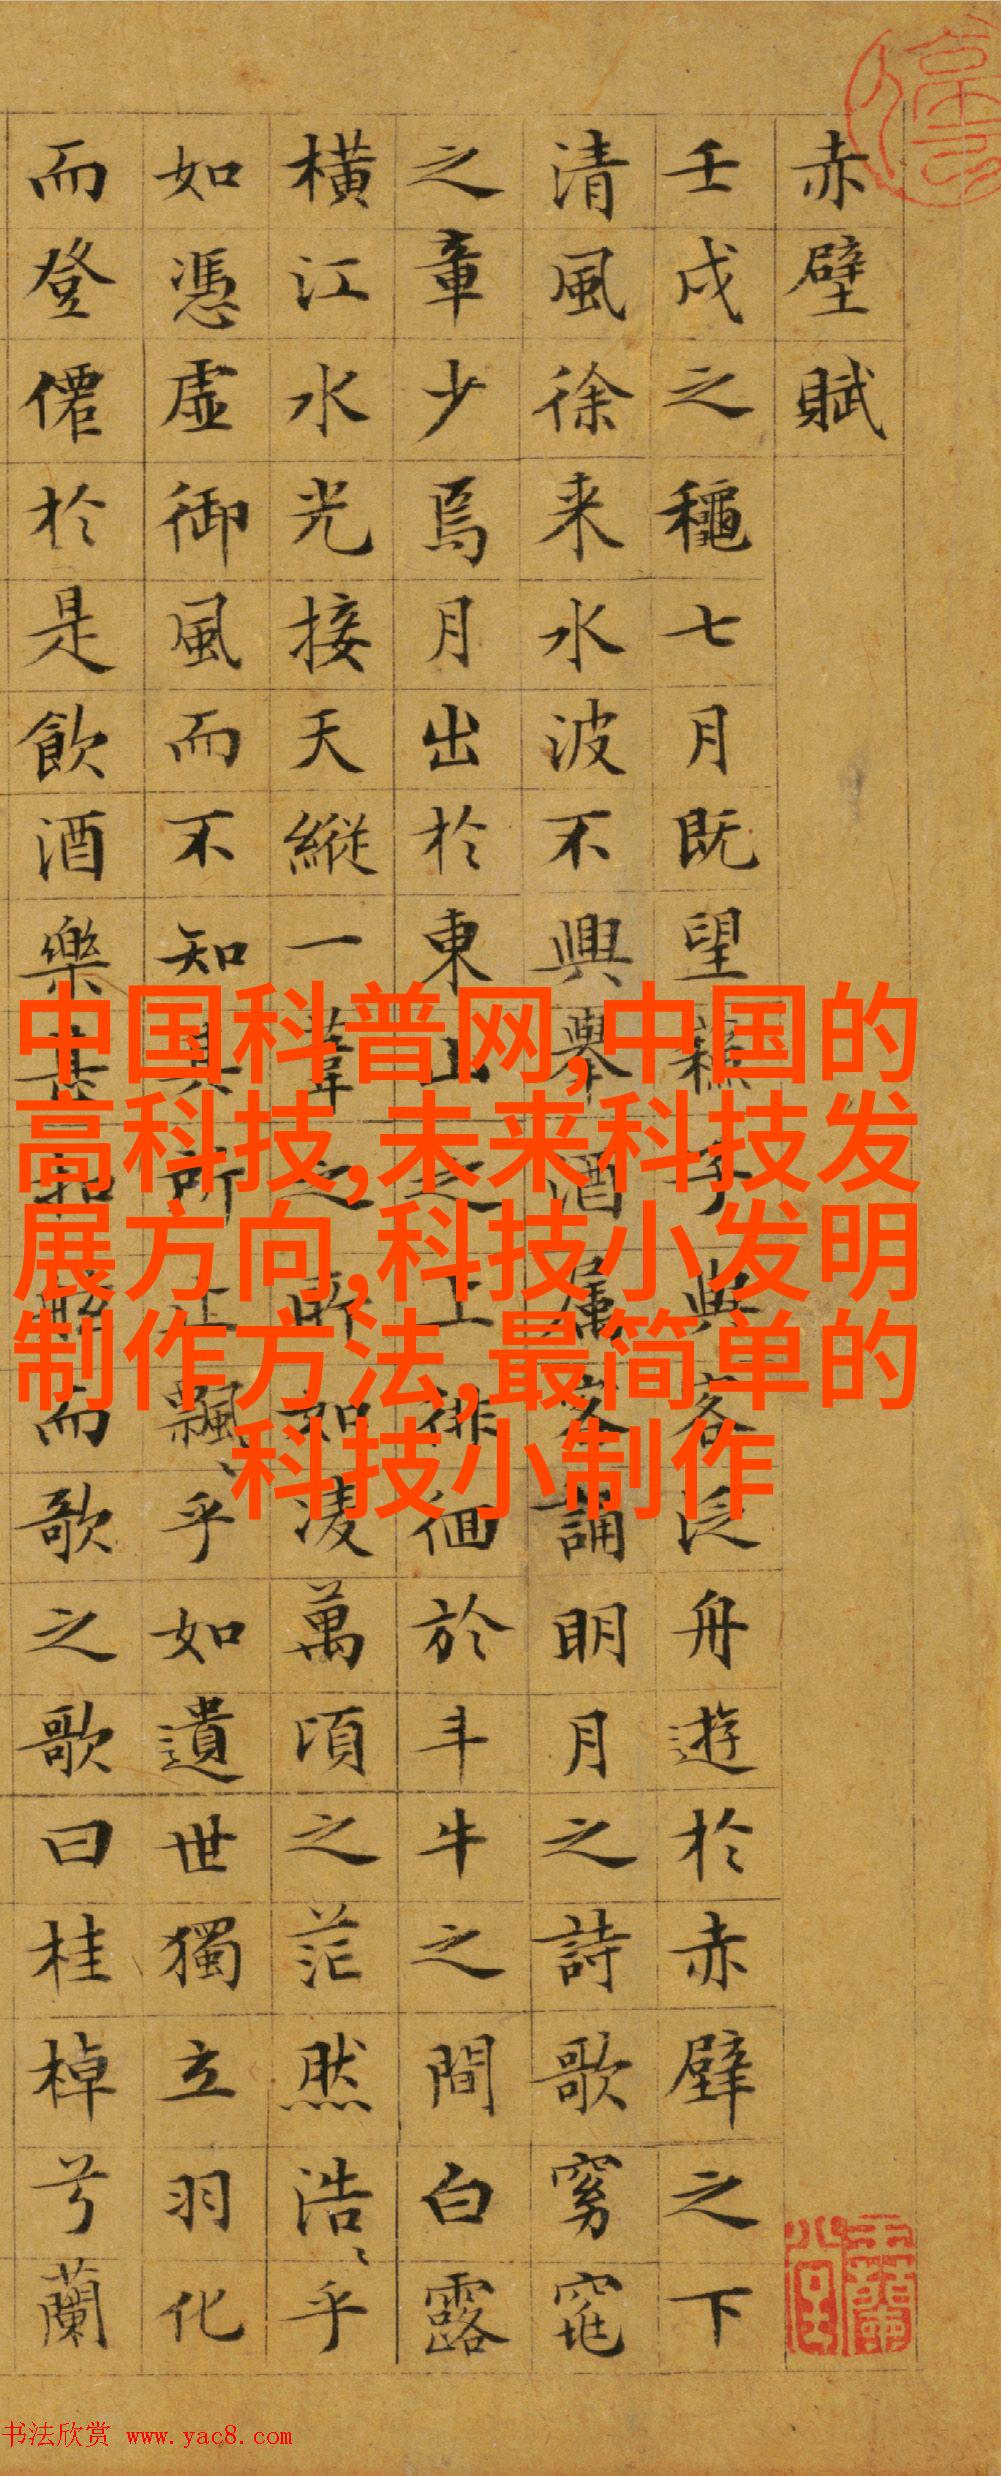 赤壁賦
壬戌之龝七月既望蘓子與客泛舟遊於赤壁之下
清風徐来水波不興舉酒属客誦明月之詩歌窈窕
之章少焉月出於東山之上徘徊於斗牛之間白露
橫江水光接天縱一葦之所如凌萬頃之茫然浩〻乎
如憑虛御風而不知其所止飄〻乎如遺世獨立羽化
而登僊於是飲酒樂甚扣舷而歌之歌曰桂棹兮蘭
中国科普网,中国的
高科技,未来科技发
展方向,科技小发明
制作方法,最简单的
科技小制作
书法欣赏 www.yac8.com